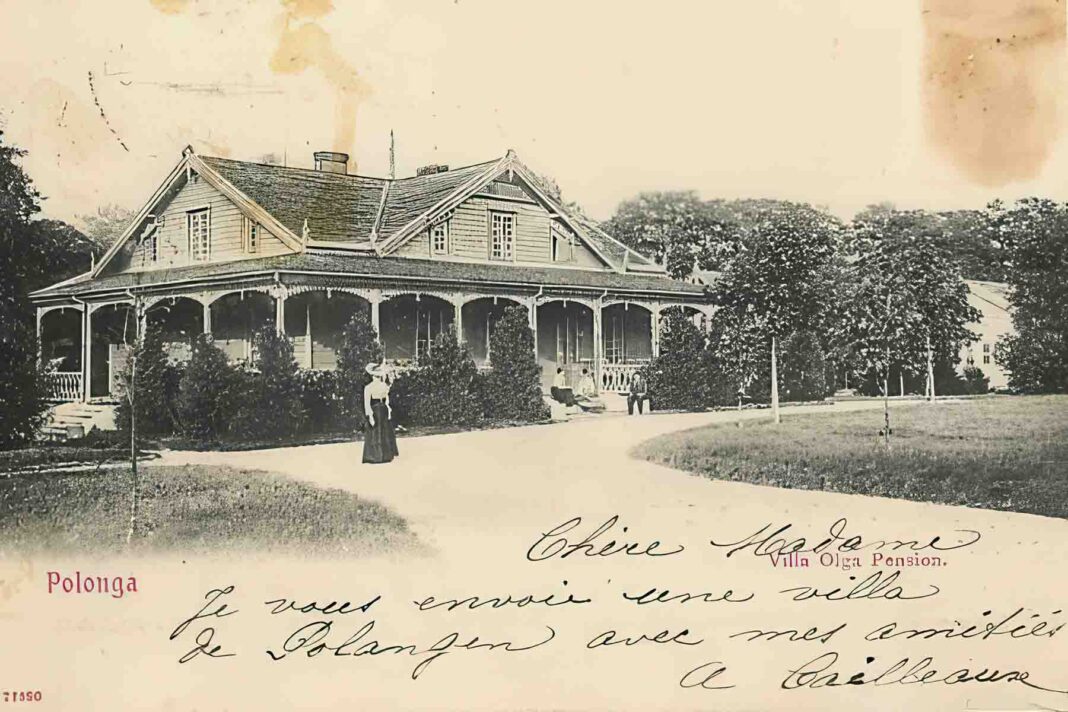 Chère Madame
Villa Olga Pension.
Polonga
Je vous envoie une villa
de Polangen avec mes amitiés
A Cailleaux
71890